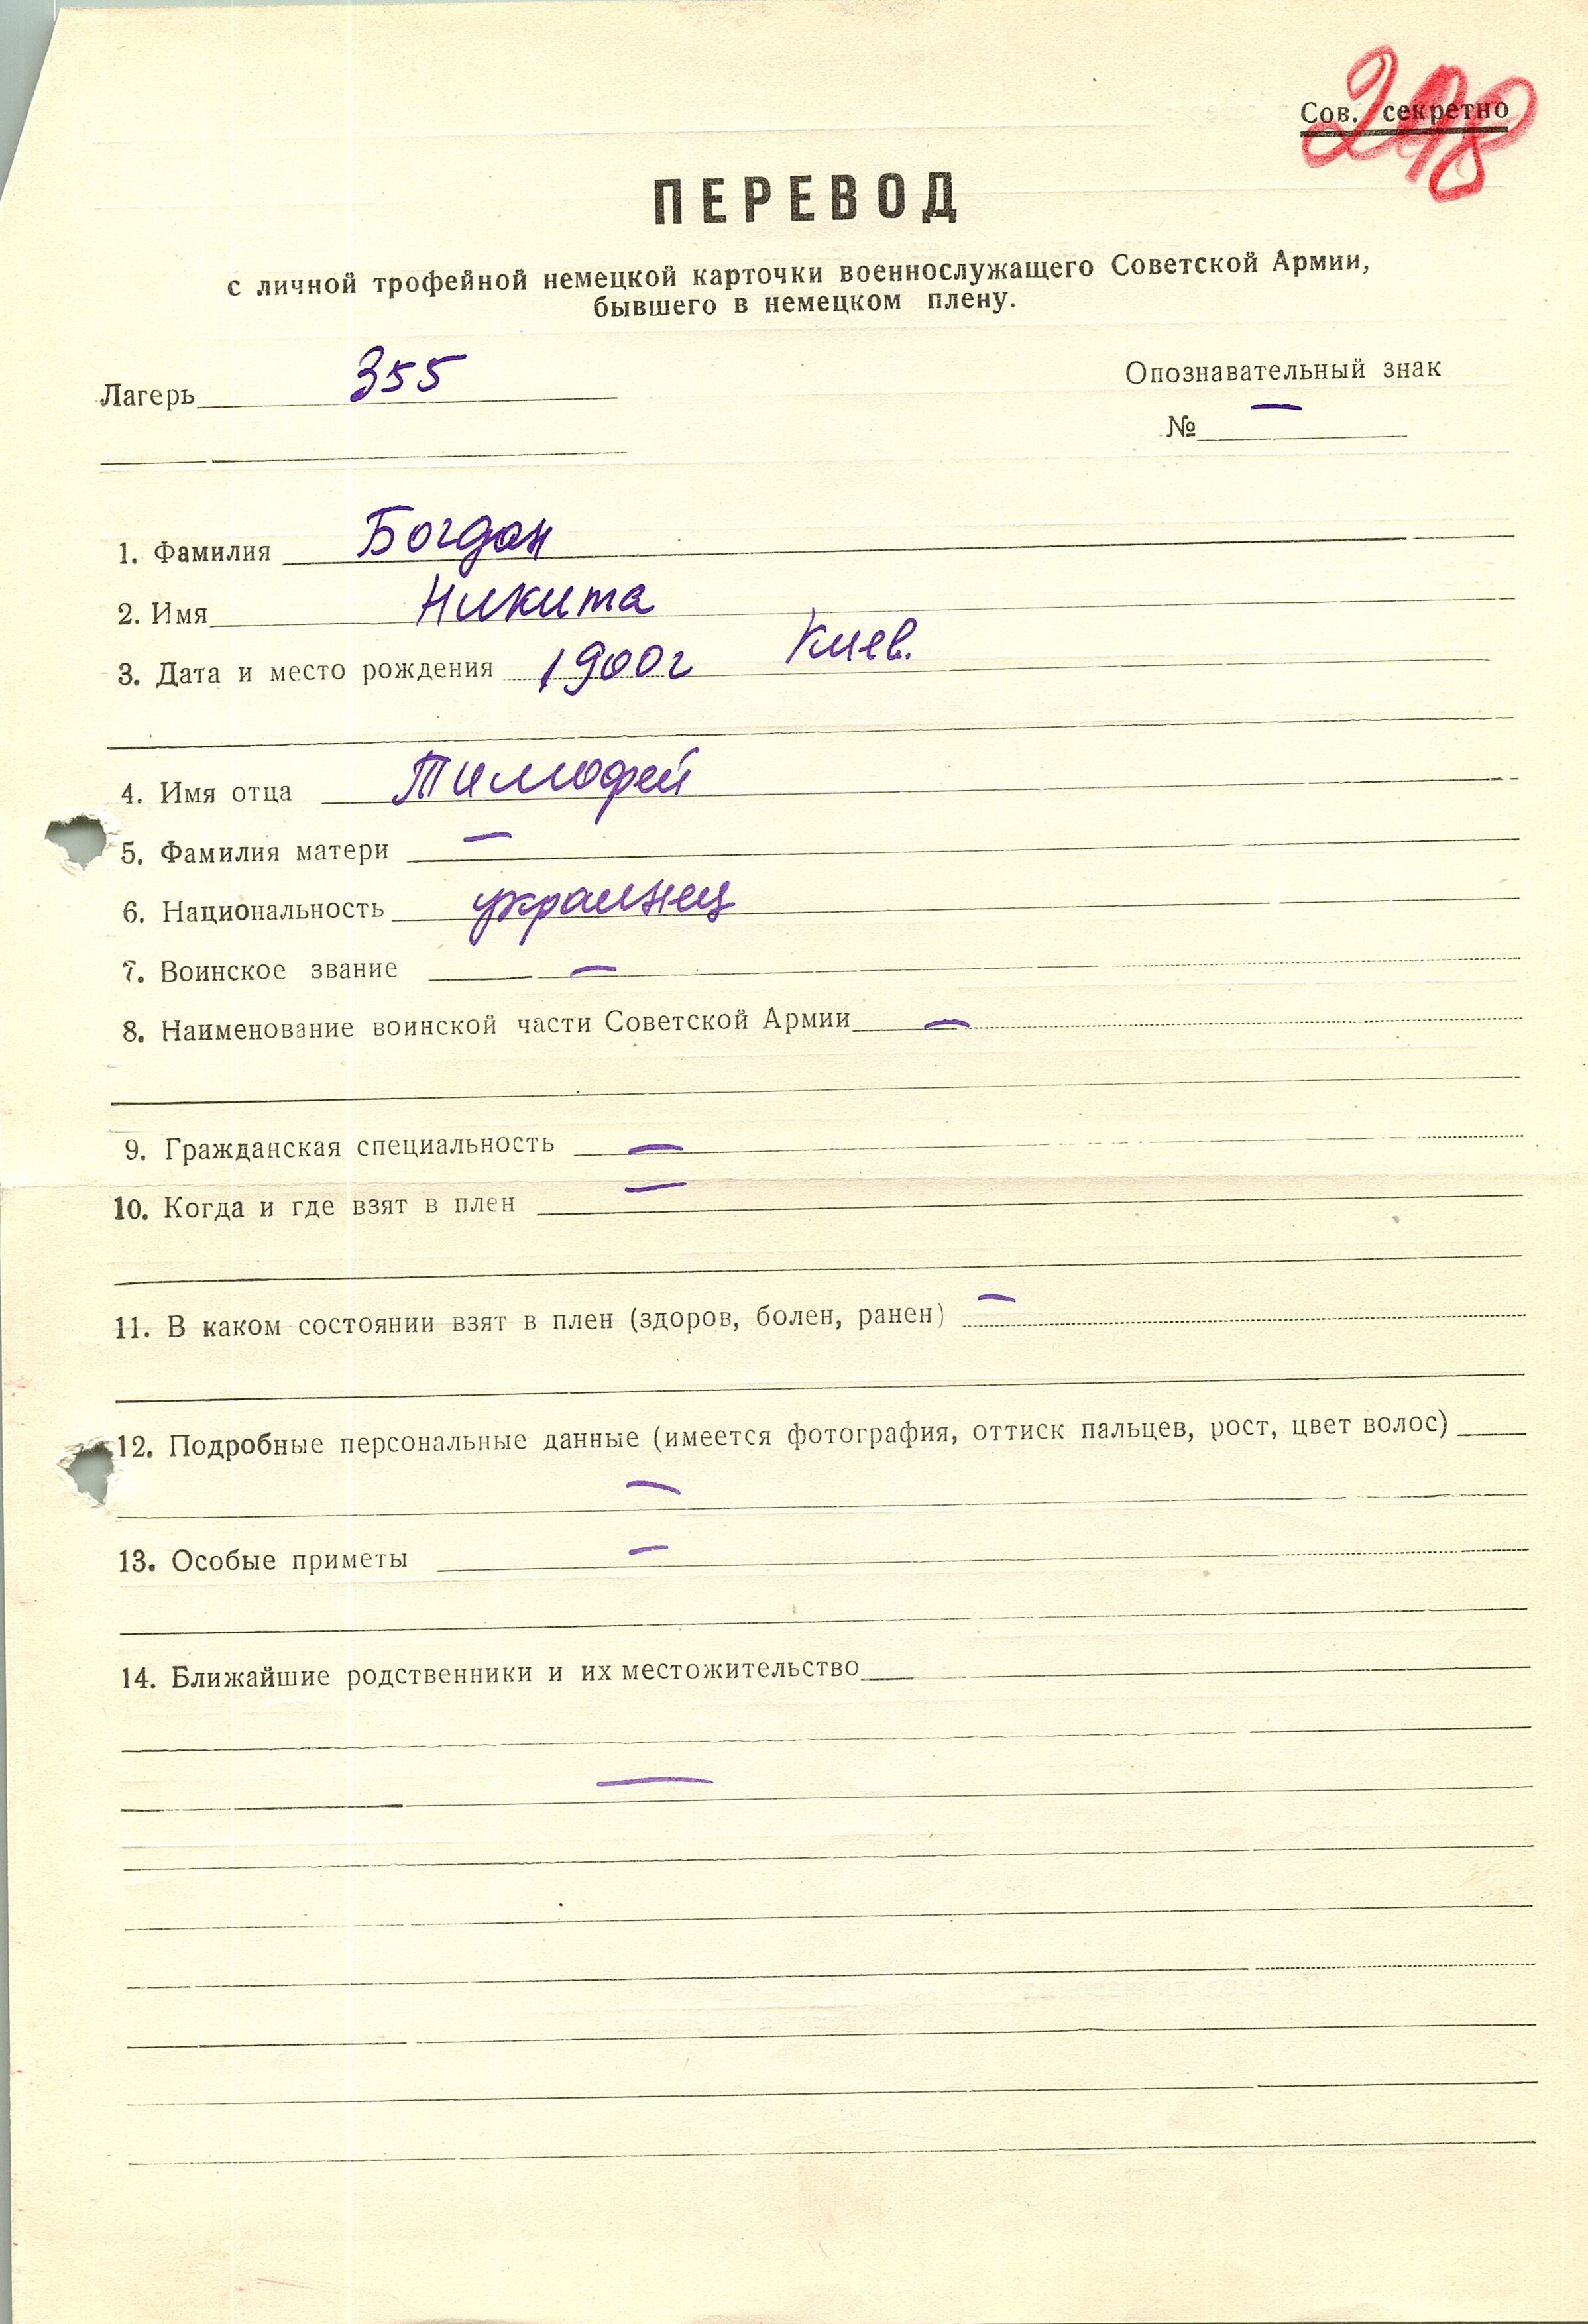 298
Сов. секретно
ПЕРЕВОД
с личной трофейной немецкой карточки военнослужащего Советской Армии,
бывшего в немецком плену.
Лагерь 355
Опознавательный знак
№ —
1. Фамилия Богдан
2. Имя Никита
3. Дата и место рождения 1900г Киев.
4. Имя отца Тимофей
5. Фамилия матери —
6. Национальность украинец
7. Воинское звание —
8. Наименование воинской части Советской Армии —
9. Гражданская специальность —
10. Когда и где взят в плен —
11. В каком состоянии взят в плен (здоров, болен, ранен) —
12. Подробные персональные данные (имеется фотография, оттиск пальцев, рост, цвет волос)
—
13. Особые приметы —
14. Ближайшие родственники и их местожительство
—